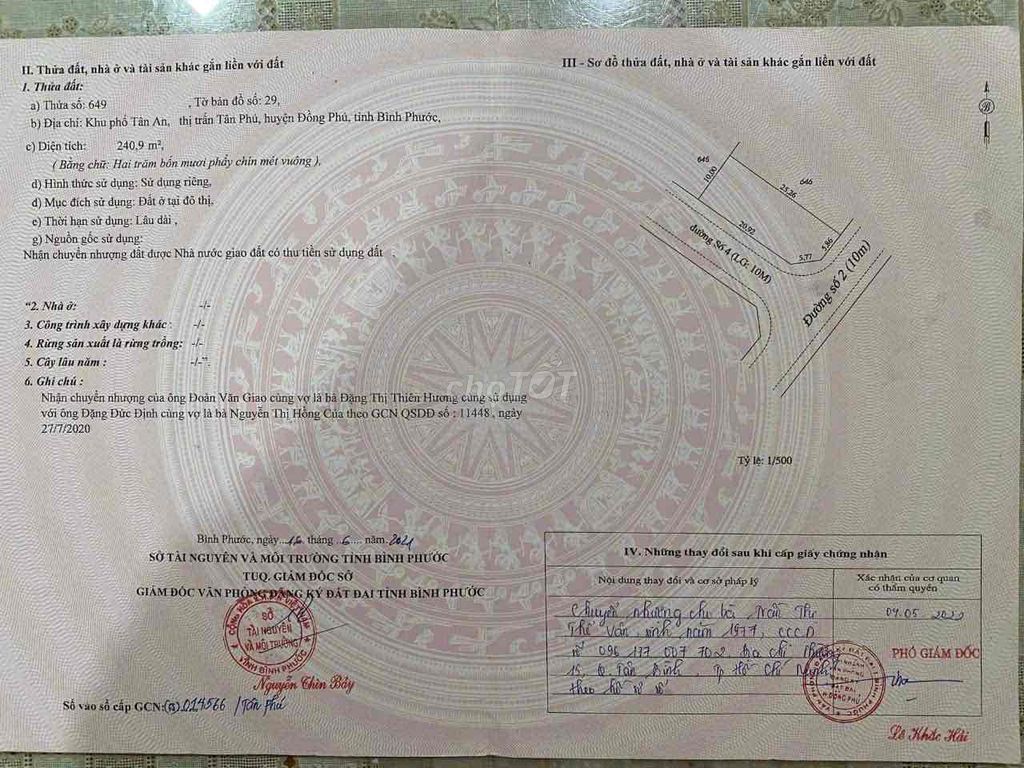 II. Thửa đất, nhà ở và tài sản khác gắn liền với đất
1. Thửa đất:
a) Thửa số: 649 , Tờ bản đồ số: 29,
b) Địa chỉ: Khu phố Tân An, thị trấn Tân Phú, huyện Đồng Phú, tỉnh Bình Phước,
c) Diện tích: 240,9 m²,
( Bằng chữ: Hai trăm bốn mươi phẩy chín mét vuông ),
d) Hình thức sử dụng: Sử dụng riêng,
đ) Mục đích sử dụng: Đất ở tại đô thị,
e) Thời hạn sử dụng: Lâu dài ,
g) Nguồn gốc sử dụng:
Nhận chuyển nhượng đất được Nhà nước giao đất có thu tiền sử dụng đất .
“2. Nhà ở: -/-
3. Công trình xây dựng khác : -/-
4. Rừng sản xuất là rừng trồng: -/-
5. Cây lâu năm : -/-”.
6. Ghi chú :
Nhận chuyển nhượng của ông Đoàn Văn Giao cùng vợ là bà Đặng Thị Thiên Hương cùng sử dụng
với ông Đặng Đức Định cùng vợ là bà Nguyễn Thị Hồng Của theo GCN QSDĐ số : 11448 , ngày
27/7/2020
Bình Phước, ngày...16 tháng ..6.... năm..2021
SỞ TÀI NGUYÊN VÀ MÔI TRƯỜNG TỈNH BÌNH PHƯỚC
TUQ. GIÁM ĐỐC SỞ
GIÁM ĐỐC VĂN PHÒNG ĐĂNG KÝ ĐẤT ĐAI TỈNH BÌNH PHƯỚC
SỞ
TÀI NGUYÊN
VÀ MÔI TRƯỜNG
TỈNH BÌNH PHƯỚC
Nguyễn Thìn Bảy
Số vào sổ cấp GCN: /Tân Phú
choTỐT
III - Sơ đồ thửa đất, nhà ở và tài sản khác gắn liền với đất
B
645
10.00
646
25.26
20.92
5.86
5.77
đường Số 4 (LG: 10M)
Đường số 2 (10m)
Tỷ lệ: 1/500
IV. Những thay đổi sau khi cấp giấy chứng nhận
Nội dung thay đổi và cơ sở pháp lý
Xác nhận của cơ quan
có thẩm quyền
Chuyển nhượng cho bà Trần Thị
Thế Vân, sinh năm 1977, CCCD
số 096 177 007 702, Địa chỉ Phường
15, Q Tân Bình, Tp Hồ Chí Minh
theo hồ sơ số
04.05
PHÓ GIÁM ĐỐC
Lê Khắc Hải